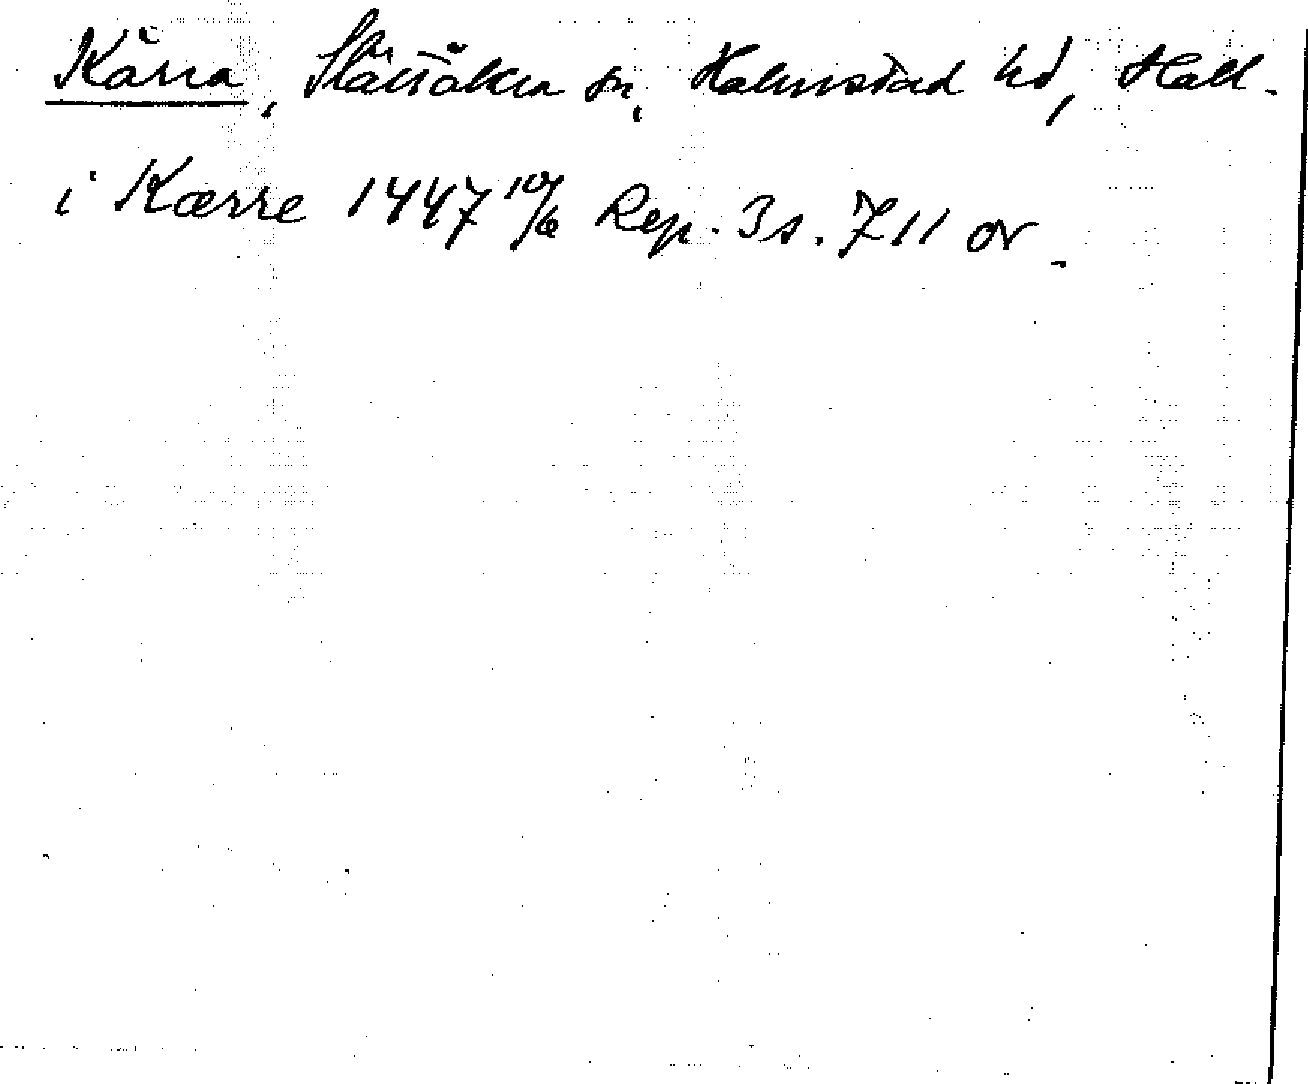 Kärra, Slättåkra sn, Halmstad hd, Hall.
i Kærre 1447 10/6 Rep. 3 s. 711 or.